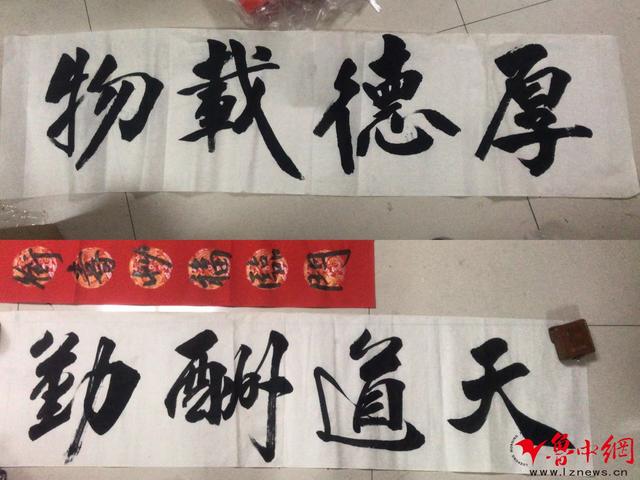 厚德載物
福臨門
天道酬勤
魯中網
www.lznews.cn